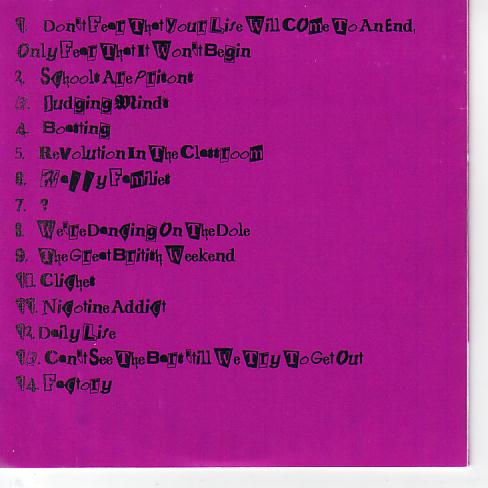 1. Don't Fear That Your Life Will Come To An End,
Only Fear That It Won't Begin
2. Schools Are Prisons
3. Judging Minds
4. Boasting
5. Revolution In The Classroom
6. Happy Families
7. ?
8. We're Dancing On The Dole
9. The Great British Weekend
10. Cliches
11. Nicotine Addict
12. Daily Life
13. Can't See The Bars 'till We Try To Get Out
14. Factory